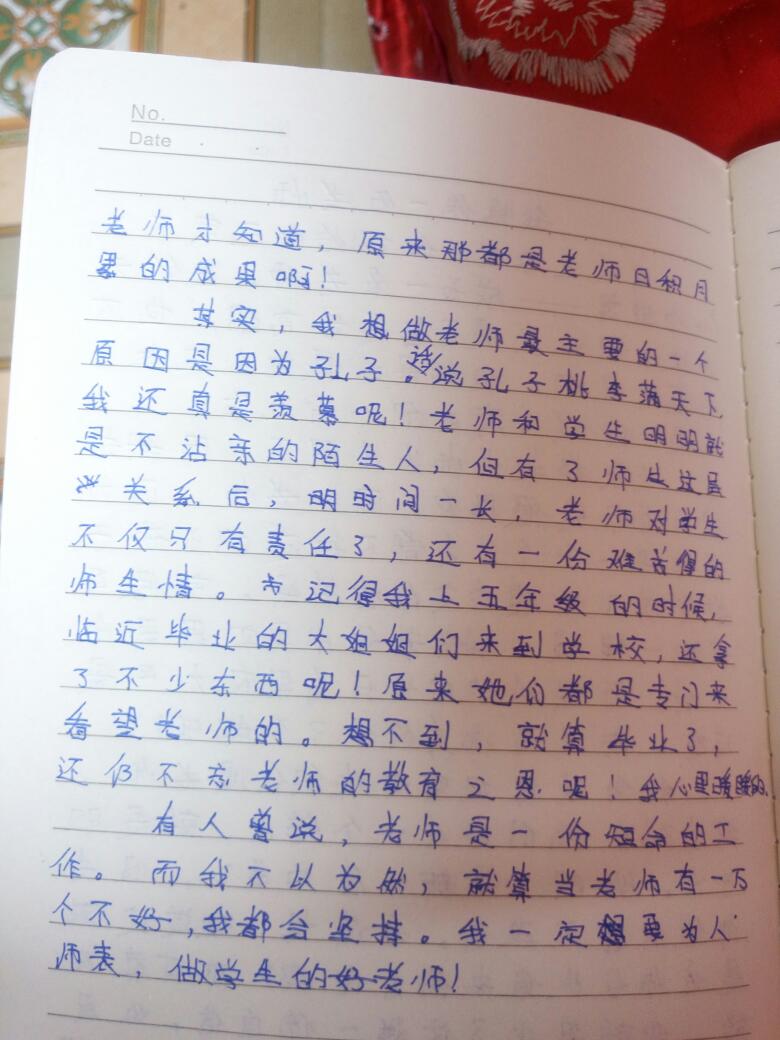 No.
Date
老师才知道，原来那都是老师日积月
累的成果啊！
其实，我想做老师最主要的一个
原因是因为孔子。话说孔子桃李满天下，
我还真是羡慕呢！老师和学生明明就
是不沾亲的陌生人，但有了师生这层
关系后，明时间一长，老师对学生
不仅只有责任了，还有一份难舍得的
师生情。记得我上五年级的时候，
临近毕业的大姐姐们来到学校，还拿
了不少东西呢！原来她们都是专门来
看望老师的。想不到，就算毕业了，
还仍不忘老师的教育之恩呢！我心里暖暖的。
有人曾说，老师是一份短命的工
作。而我不以为然，就算当老师有一万
个不好，我都会坚持。我一定要为人
师表，做学生的好老师！